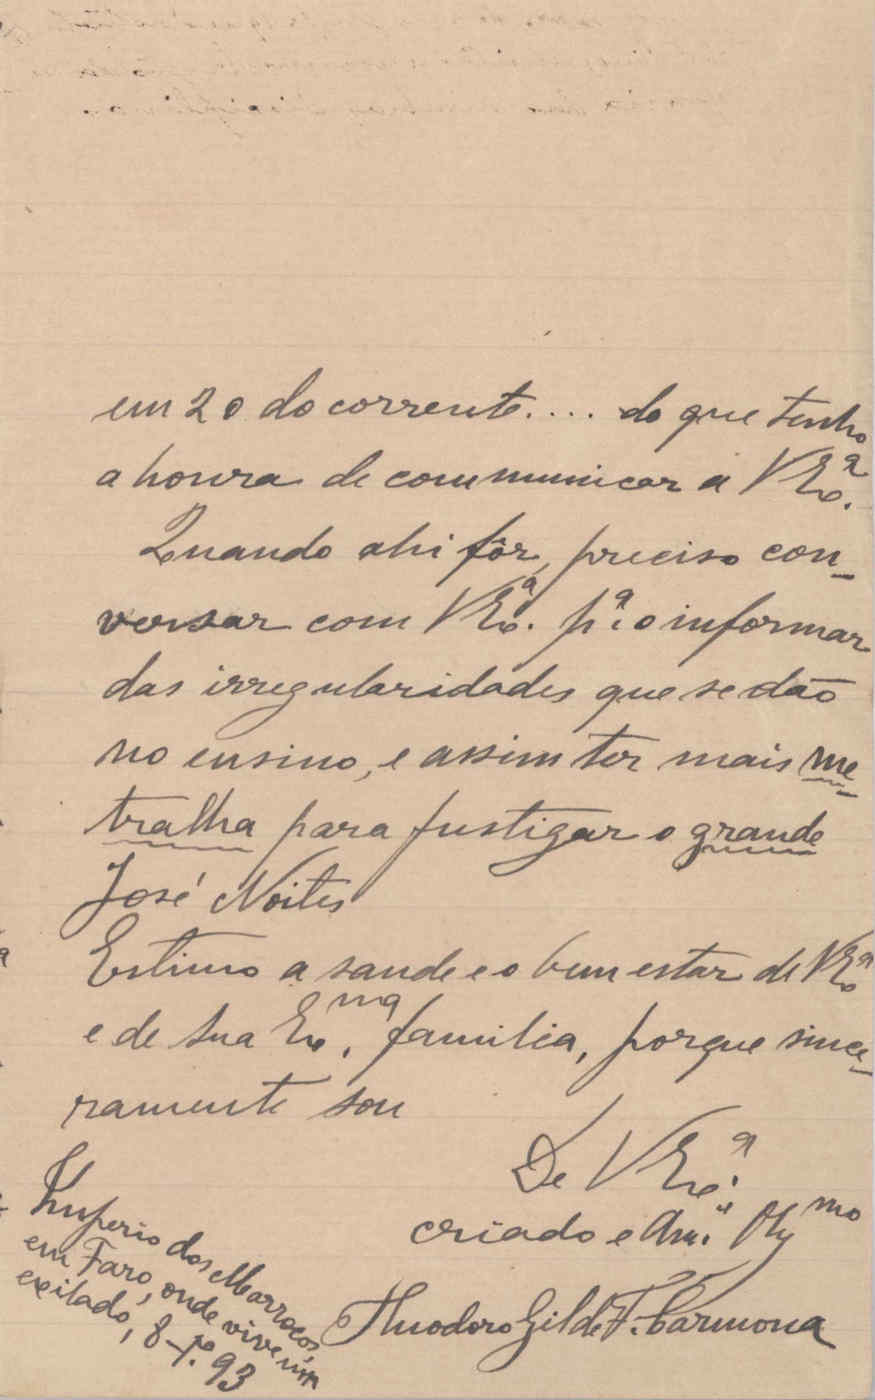 em 20 do corrente.... do que tenho
a honra de communicar a V Exª.
Quando ahi fôr, preciso con-
versar com V Exª. pª. o informar
das irregularidades que se dão
no ensino, e assim ter mais me-
tralha para fustigar o grande
José Noites
Estimo a saude e o bem estar de V Exª
e de sua Exma. familia, porque since-
ramente sou
De V Exª.
criado e Amº.
Theodoro Gil de F. Carmona
Imperio dos Marrocos,
em Faro, onde vive um
exilado, 8- 93